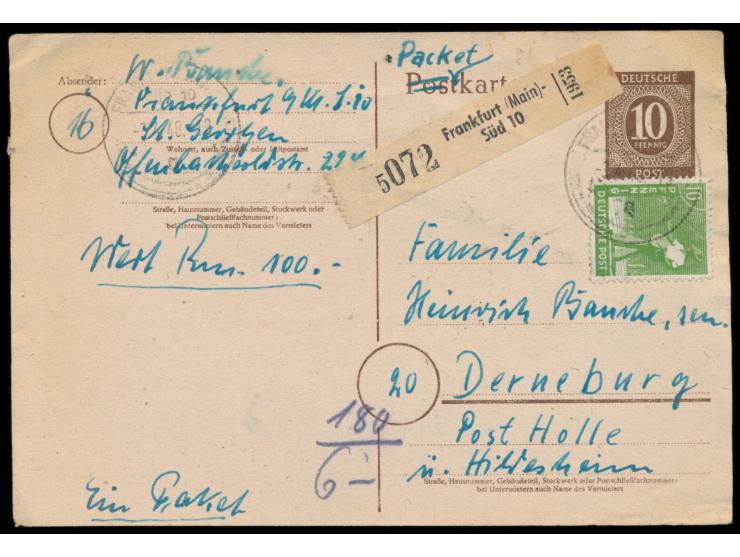 Absender: W. Bansche.
Frankfurt a/M. S-10
16
Offenbacherldstr. 224
Wohnort, auch Zustell- oder Leitpostamt
Straße, Hausnummer, Gebäudeteil, Stockwerk oder
Postschließfachnummer;
bei Untermietern auch Name des Vermieters
Wert Rm. 100.-
180
6-
Ein Paket
Packet
Postkart
5072
Frankfurt (Main)-
Süd 10
1953
DEUTSCHE
10
PFENNIG
POST
10
PFENNIG
DEUTSCHE POST
Familie
Heinrich Bansche, sen.
20 Derneburg
Post Holle
ü. Hildesheim
Straße, Hausnummer, Gebäudeteil, Stockwerk oder Postschließfachnummer;
bei Untermietern auch Name des Vermieters